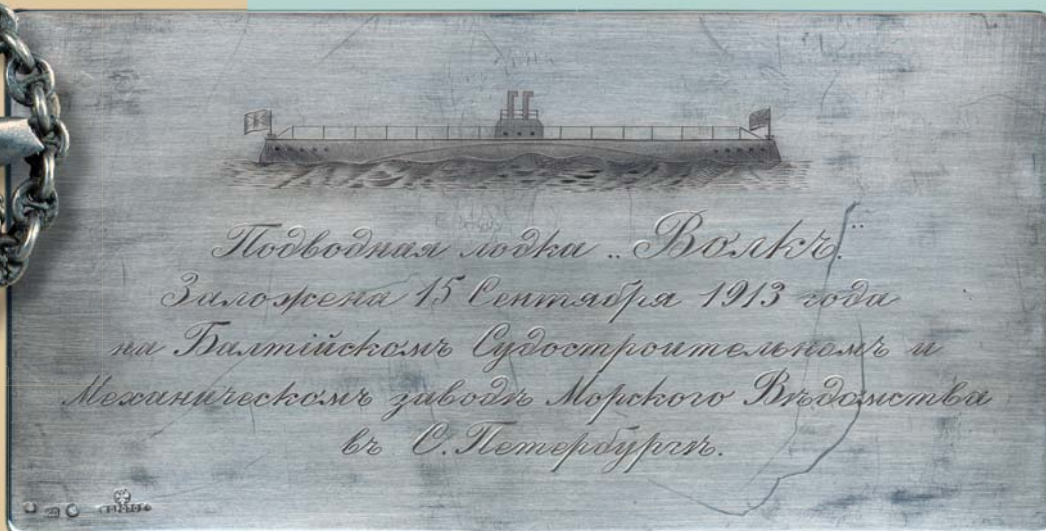 Подводная лодка „Волкъ."
Заложена 15 Сентября 1913 года
на Балтійскомъ Судостроительномъ и
Механическомъ заводѣ Морского Вѣдомства
въ С. Петербургѣ.